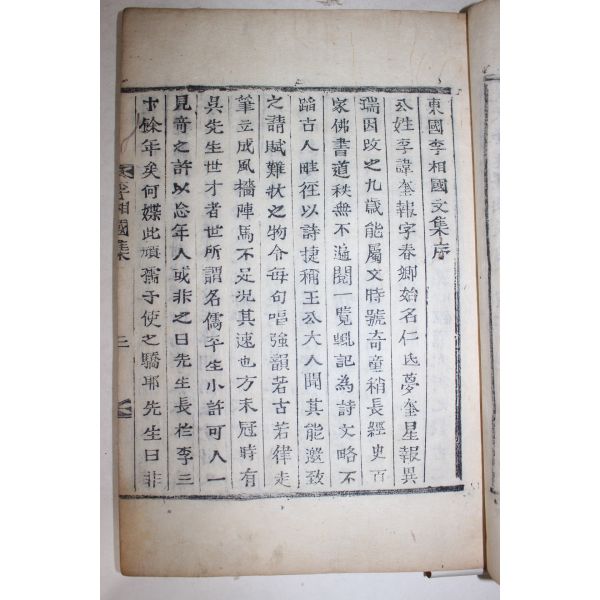 東國李相國文集序
公姓李諱奎報字春卿始名仁氐夢奎星報異
瑞因改之九歲能屬文時號奇童稍長經史百
家佛書道秩無不遍閱一覽輒記為詩文略不
蹈古人畦徑以詩捷稱王公大人聞其能邀致
之請賦難狀之物令每句唱強韻若古若律走
筆立成風檣陣馬不足况其速也方未冠時有
吳先生世才者世所謂名儒平生小許可人一
見奇之許以忘年人或非之曰先生長於李三
十餘年矣何媒此頑孺子使之驕耶先生曰非
李相國集